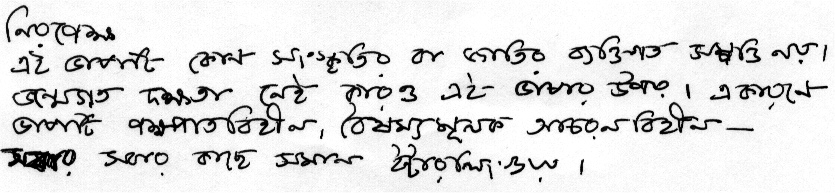 নিরপেক্ষ
এই ভাষাটি কোন সংস্কৃতির বা জাতির ব্যক্তিগত সম্পত্তি নয়।
জন্মগত দক্ষতা নেই কারও এই ভাষার উপর। একারনে
ভাষাটি পক্ষপাতবিহীন, বৈষম্যমূলক আচরনবিহীন —
সবার কাছে সমান